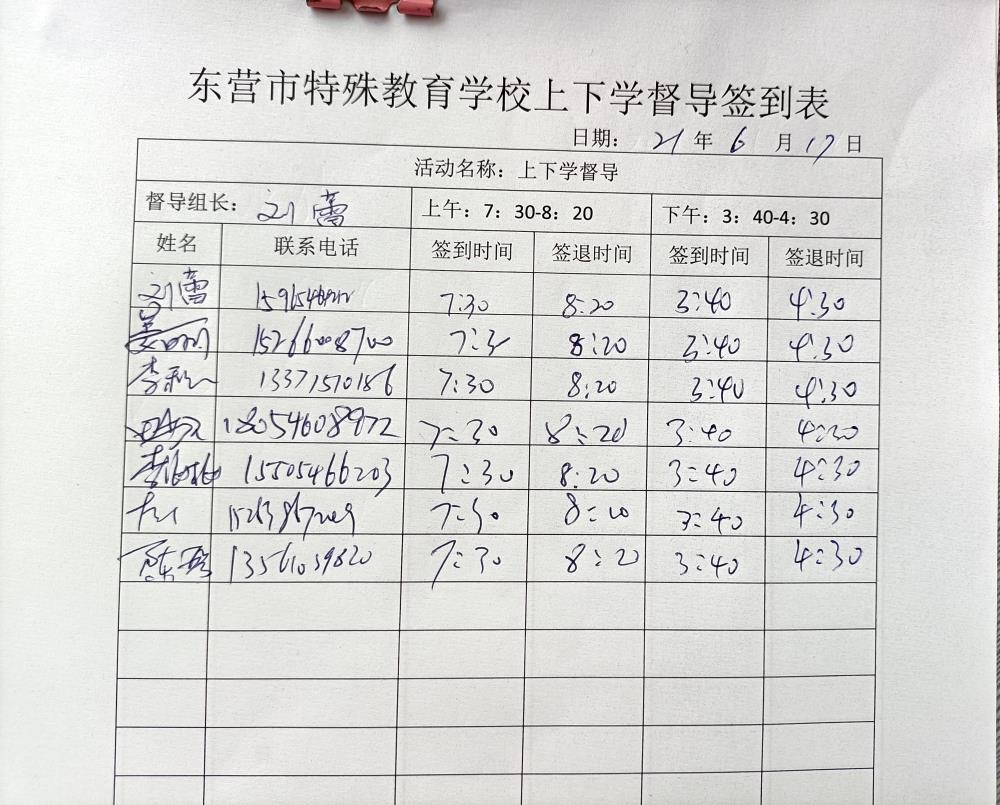 东营市特殊教育学校上下学督导签到表
日期： 21 年 6 月 17 日
活动名称：上下学督导
督导组长： 刘蕾 上午：7：30-8：20 下午：3：40-4：30
姓名 联系电话 签到时间 签退时间 签到时间 签退时间
刘蕾 7:30 8:20 3:40 4:30
15266008700 7:3 8:20 3:40 4:30
李 13371510186 7:30 8:20 3:40 4:30
18054608972 7:30 8:20 3:40 4:30
李 15505466203 7:30 8:20 3:40 4:30
7:30 3:40 4:30
陈 13561039820 7:30 8:20 3:40 4:30